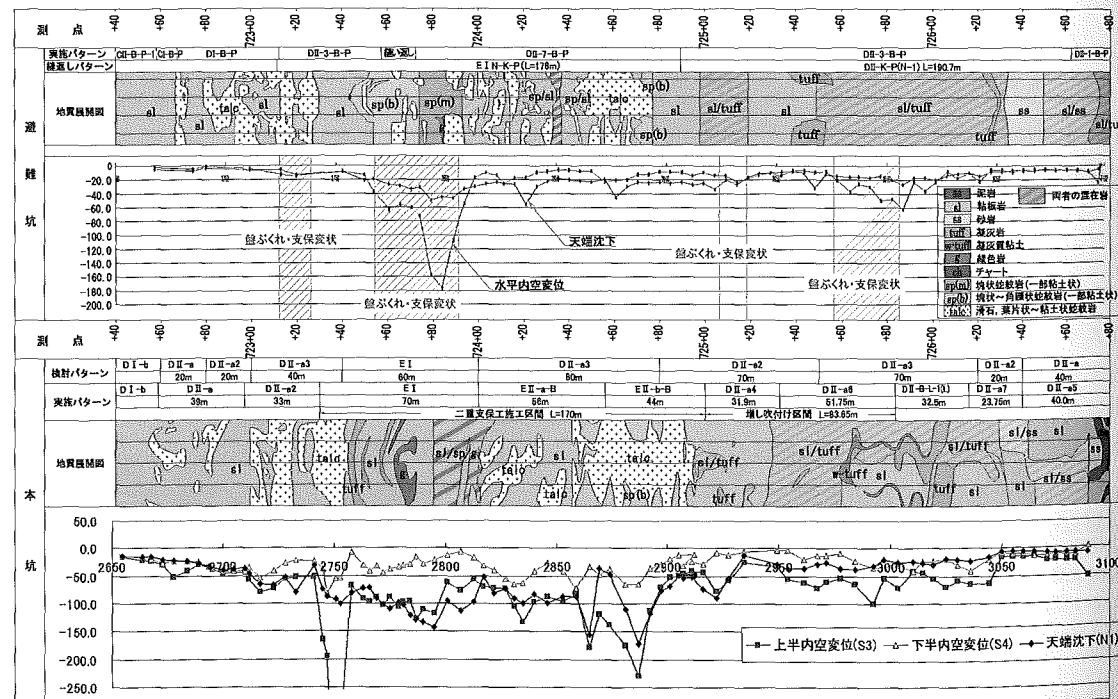 測 点
+40 +60 +80 723+00 +20 +40 +60 +80 724+00 +20 +40 +60 +80 725+00 +20 +40 +60 +80 726+00 +20 +40 +60 +80
避難坑
実施パターン CII-B-P-1 CI-B-P DI-B-P DII-3-B-P 縫い返し DII-7-B-P DII-3-B-P DII-1-B-P
縫返しパターン EIN-K-P(L=178m) DII-K-P(N-1) L=190.7m
地質展開図
sl sl talc sl sl sp(b) sp(m) g sp/sl sp/sl talc sp(b) sp(b) sl sl/tuff sl tuff tuff sl/tuff tuff ss sl/ss sl/tu
0
-20.0
-40.0
-60.0
-80.0
-100.0
-120.0
-140.0
-160.0
-180.0
-200.0
盤ぶくれ・支保変状
盤ぶくれ・支保変状
盤ぶくれ・支保変状
盤ぶくれ・支保変状
天端沈下
水平内空変位
泥岩
両者の混在岩
sl 粘板岩
ss 砂岩
tuff 凝灰岩
w-tuff 凝灰質粘土
g 緑色岩
ch チャート
sp(m) 塊状蛇紋岩(一部粘土状)
sp(b) 塊状～角礫状蛇紋岩(一部粘土状)
talc 滑石, 葉片状～粘土状蛇紋岩
測 点
+40 +60 +80 723+00 +20 +40 +60 +80 724+00 +20 +40 +60 +80 725+00 +20 +40 +60 +80 726+00 +20 +40 +60 +80
本坑
検討パターン DI-b DII-a DII-a2 DII-a3 EI DII-a3 DII-a2 DII-a3 DII-a2 DII-a
20m 20m 40m 60m 80m 70m 70m 20m 40m
実施パターン DI-b DII-a DII-a2 EI EII-a-B EII-b-B DII-a4 DII-a6 DII-B-L-1(L) DII-a7 DII-a5
39m 33m 70m 56m 44m 31.9m 51.75m 32.5m 23.75m 40.0m
二重支保工施工区間 L=170m 増し吹付け区間 L=83.65m
地質展開図
sl talc tuff sl g sl/sp g talc sl talc talc sp(b) sl/tuff tuff sl/tuff w-tuff sl sl/tuff tuff sl sl/ss sl/ss ss
50.0
0.0
-50.0
-100.0
-150.0
-200.0
-250.0
2650 2700 2750 2800 2850 2900 2950 3000 3050 3100
上半内空変位(S3) 下半内空変位(S4) 天端沈下(N1)